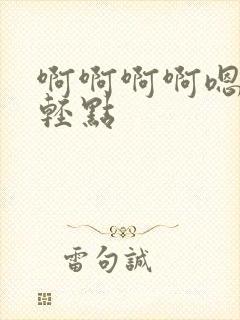 啊啊啊啊嗯
輕點
雷句誠